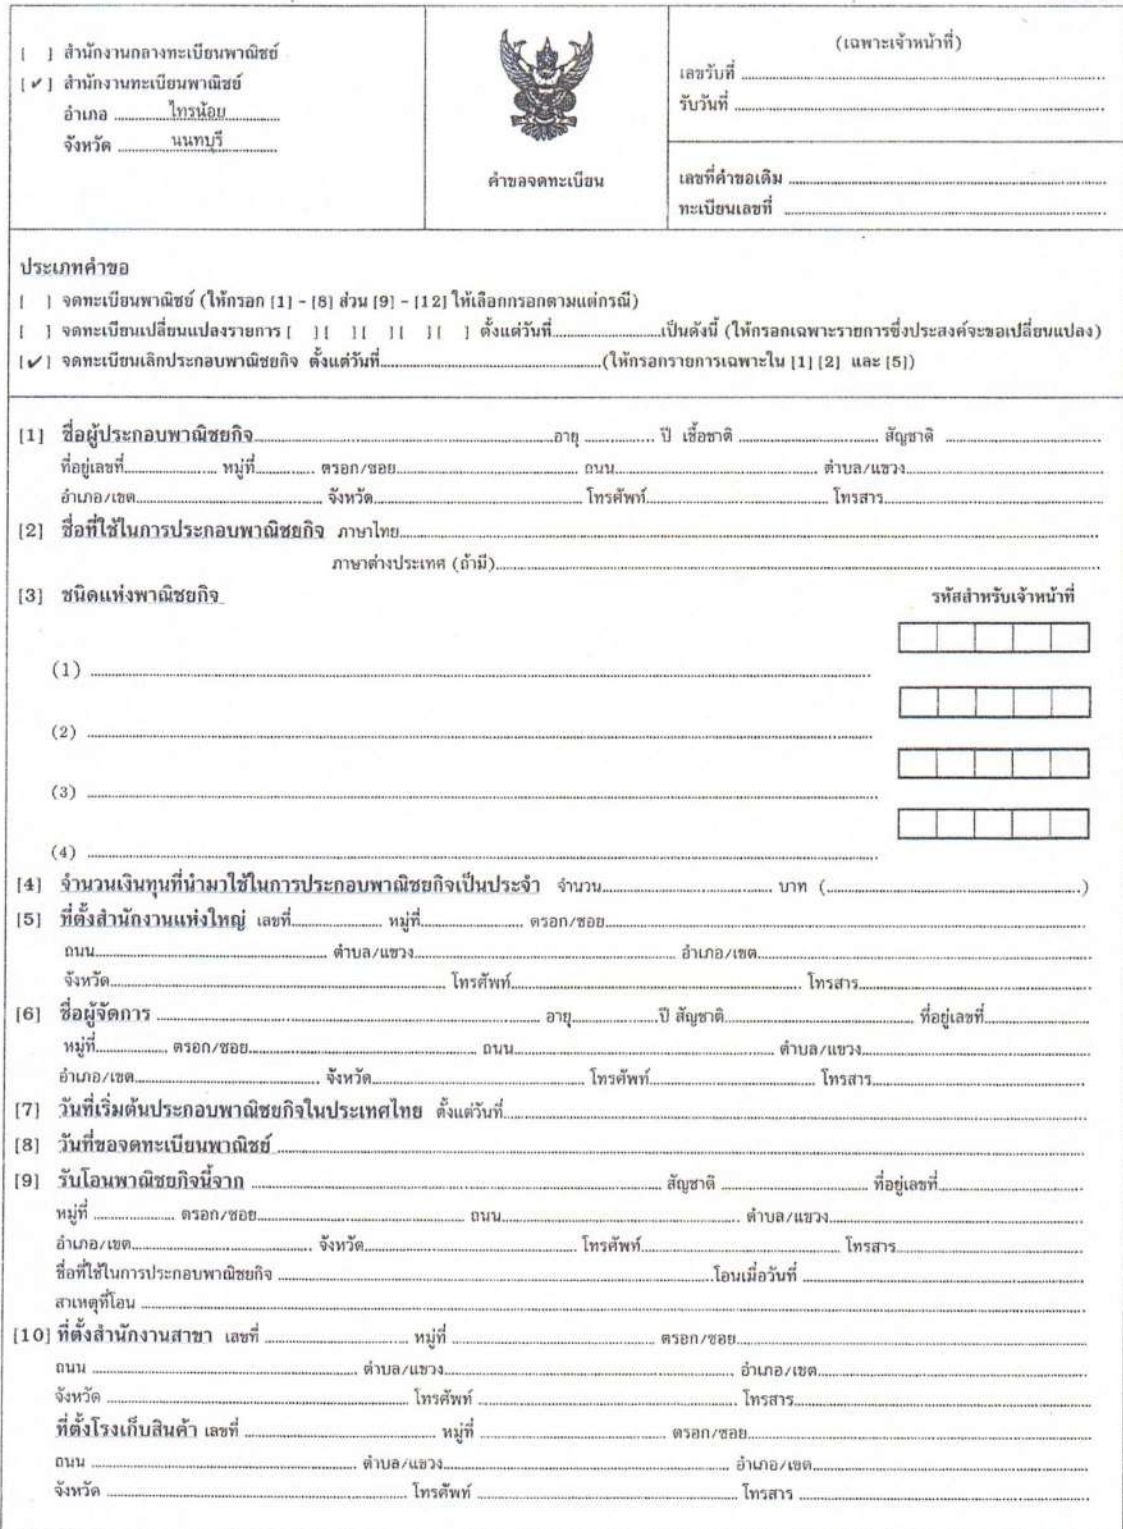 [ ] สำนักงานกลางทะเบียนพาณิชย์
[✔] สำนักงานทะเบียนพาณิชย์
อำเภอ ...............ไทรน้อย...............
จังหวัด ...............นนทบุรี...............
คำขอจดทะเบียน
(เฉพาะเจ้าหน้าที่)
เลขรับที่ ..............................
รับวันที่ ..............................
เลขที่คำขอเดิม ..............................
ทะเบียนเลขที่ ..............................
ประเภทคำขอ
[ ] จดทะเบียนพาณิชย์ (ให้กรอก [1] - [8] ส่วน [9] - [12] ให้เลือกกรอกตามแต่กรณี)
[ ] จดทะเบียนเปลี่ยนแปลงรายการ [ ] [ ] [ ] [ ] [ ] ตั้งแต่วันที่....................เป็นดังนี้ (ให้กรอกเฉพาะรายการซึ่งประสงค์จะขอเปลี่ยนแปลง)
[✔] จดทะเบียนเลิกประกอบพาณิชยกิจ ตั้งแต่วันที่..............................(ให้กรอกรายการเฉพาะใน [1] [2] และ [5])
[1] ชื่อผู้ประกอบพาณิชยกิจ..............................อายุ ............... ปี เชื้อชาติ .............................. สัญชาติ ..............................
ที่อยู่เลขที่.................... หมู่ที่............... ตรอก/ซอย.............................. ถนน.............................. ตำบล/แขวง..............................
อำเภอ/เขต.............................. จังหวัด.............................. โทรศัพท์.............................. โทรสาร..............................
[2] ชื่อที่ใช้ในการประกอบพาณิชยกิจ ภาษาไทย..............................
ภาษาต่างประเทศ (ถ้ามี)..............................
[3] ชนิดแห่งพาณิชยกิจ
รหัสสำหรับเจ้าหน้าที่
(1) ..............................
(2) ..............................
(3) ..............................
(4) ..............................
[4] จำนวนเงินทุนที่นำมาใช้ในการประกอบพาณิชยกิจเป็นประจำ จำนวน.............................. บาท (..............................)
[5] ที่ตั้งสำนักงานแห่งใหญ่ เลขที่.................... หมู่ที่.................... ตรอก/ซอย..............................
ถนน.............................. ตำบล/แขวง.............................. อำเภอ/เขต..............................
จังหวัด.............................. โทรศัพท์.............................. โทรสาร..............................
[6] ชื่อผู้จัดการ .............................. อายุ....................ปี สัญชาติ.............................. ที่อยู่เลขที่....................
หมู่ที่............... ตรอก/ซอย.............................. ถนน.............................. ตำบล/แขวง..............................
อำเภอ/เขต.............................. จังหวัด.............................. โทรศัพท์.............................. โทรสาร..............................
[7] วันที่เริ่มต้นประกอบพาณิชยกิจในประเทศไทย ตั้งแต่วันที่..............................
[8] วันที่ขอจดทะเบียนพาณิชย์ ..............................
[9] รับโอนพาณิชยกิจนี้จาก .............................. สัญชาติ .............................. ที่อยู่เลขที่..............................
หมู่ที่ .................... ตรอก/ซอย.............................. ถนน.............................. ตำบล/แขวง..............................
อำเภอ/เขต.............................. จังหวัด.............................. โทรศัพท์.............................. โทรสาร..............................
ชื่อที่ใช้ในการประกอบพาณิชยกิจ ..............................โอนเมื่อวันที่ ..............................
สาเหตุที่โอน ..............................
[10] ที่ตั้งสำนักงานสาขา เลขที่ .............................. หมู่ที่ .............................. ตรอก/ซอย..............................
ถนน .............................. ตำบล/แขวง.............................. อำเภอ/เขต..............................
จังหวัด .............................. โทรศัพท์ .............................. โทรสาร..............................
ที่ตั้งโรงเก็บสินค้า เลขที่ .............................. หมู่ที่ .............................. ตรอก/ซอย..............................
ถนน .............................. ตำบล/แขวง.............................. อำเภอ/เขต..............................
จังหวัด .............................. โทรศัพท์ .............................. โทรสาร ..............................